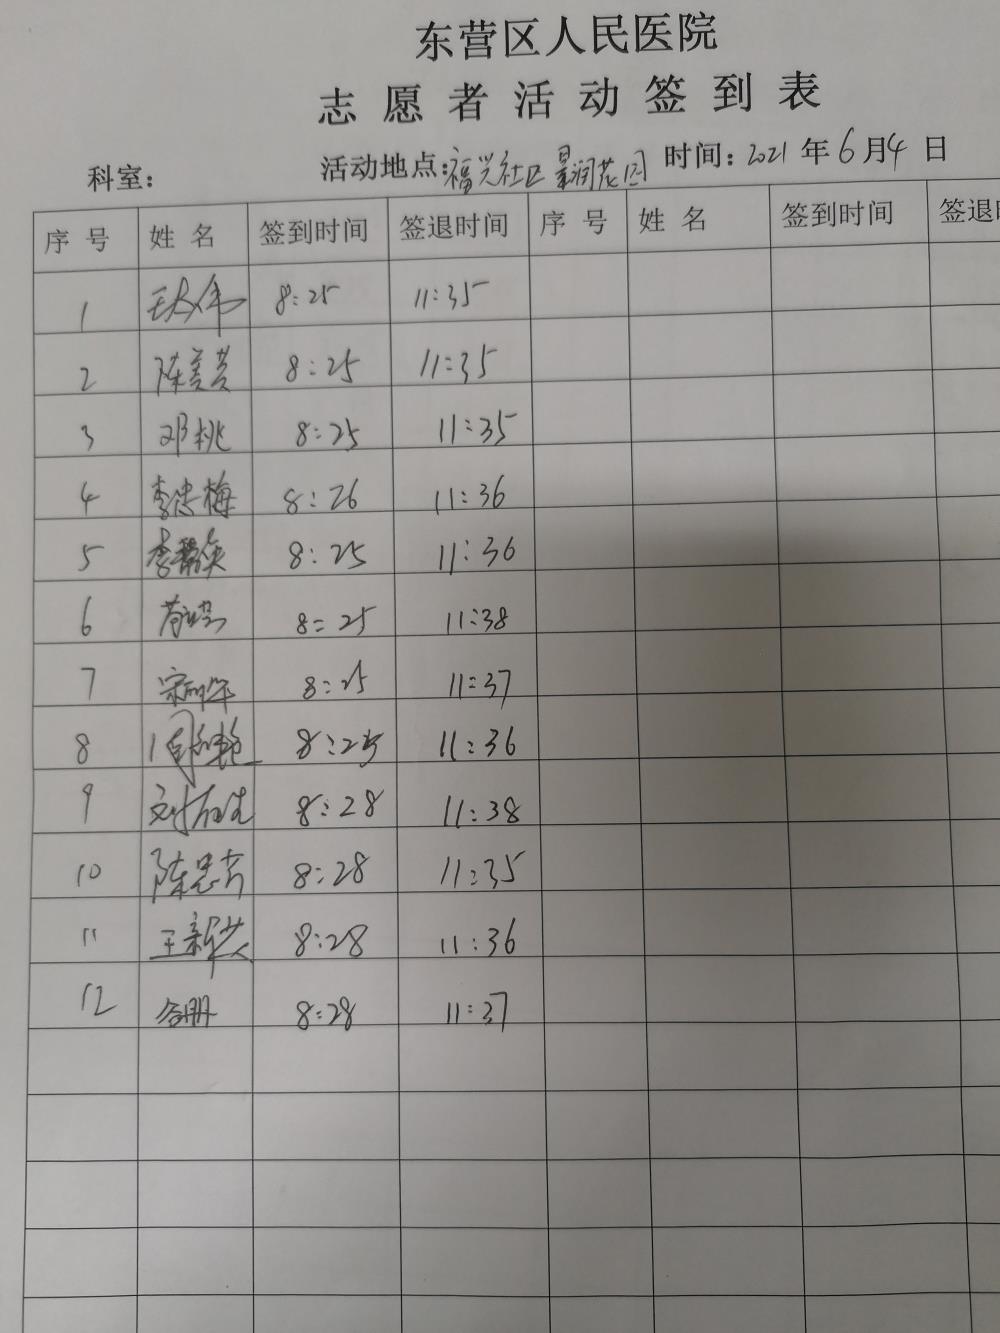 东营区人民医院
志愿者活动签到表
科室： 活动地点：福兴社区景润花园 时间：2021年6月4日
序号 姓名 签到时间 签退时间 序号 姓名 签到时间 签退时
1 8:25 11:35
2 陈美芳 8:25 11:35
3 邓桃 8:25 11:35
4 李忠梅 8:26 11:36
5 李 8:25 11:36
6 8:25 11:38
7 宋 8:25 11:37
8 周 8:25 11:36
9 刘 8:28 11:38
10 陈思 8:28 11:35
11 王新 8:28 11:36
12 8:28 11:37